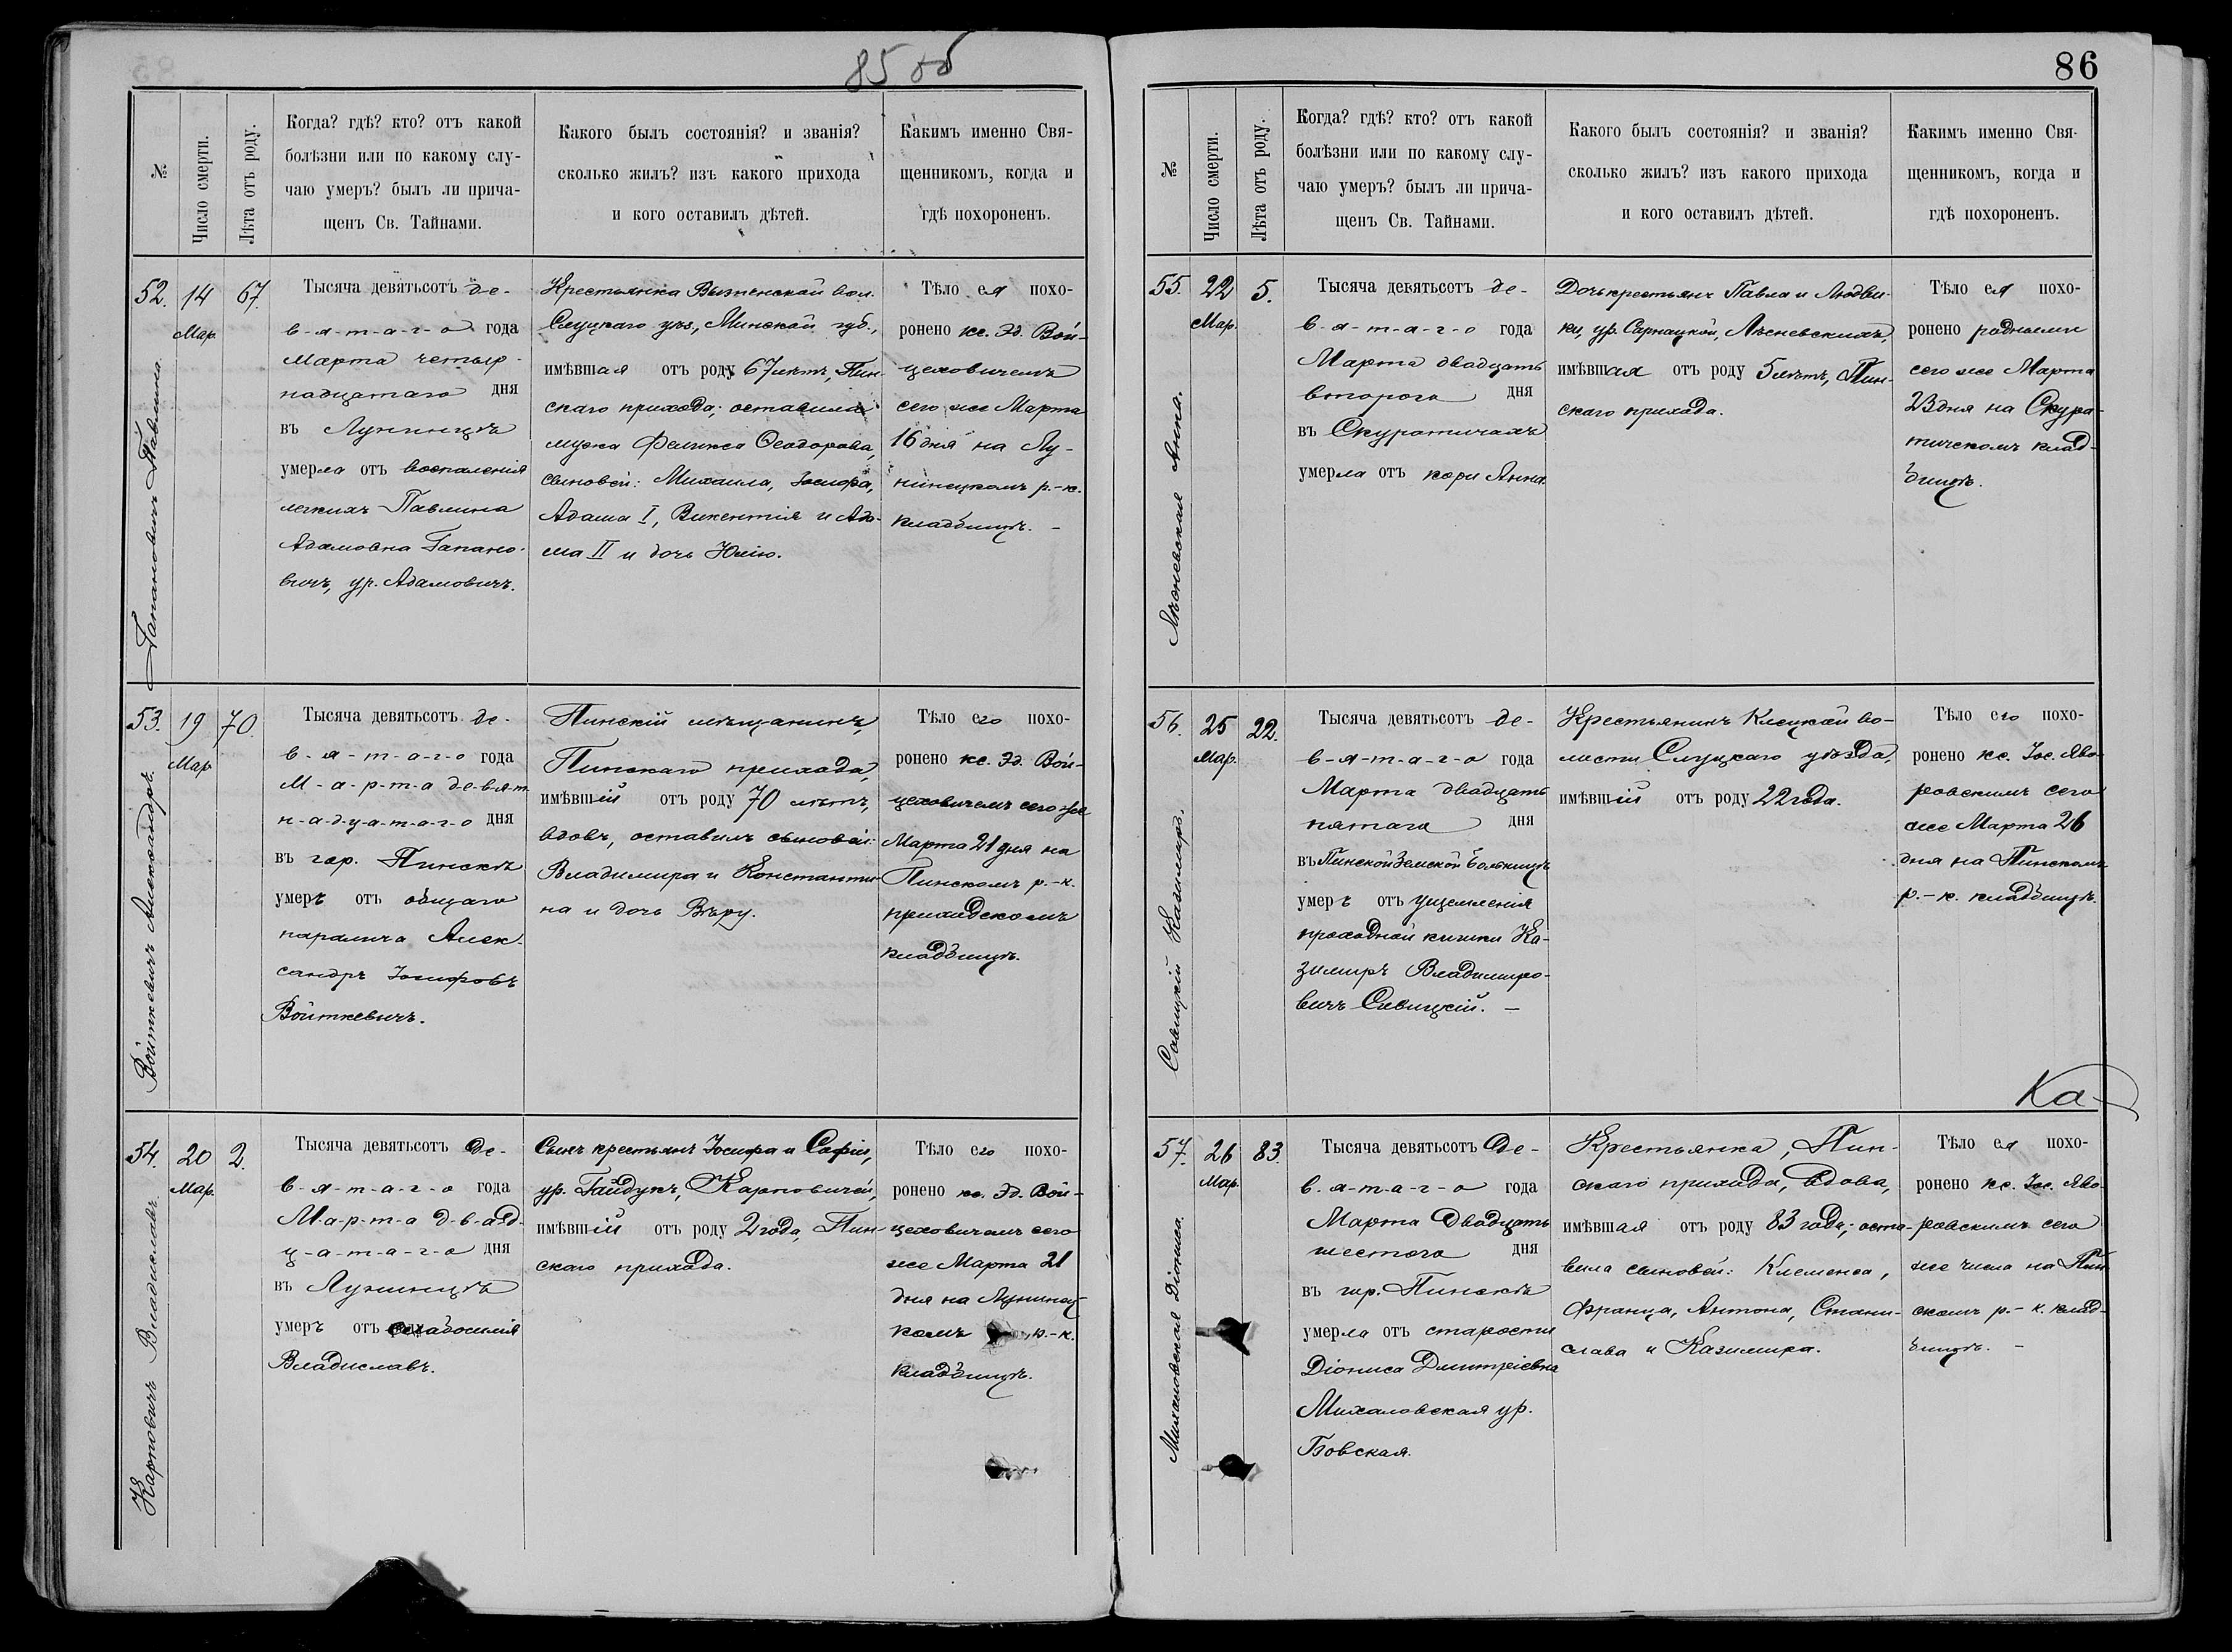 85 об
№
Число смерти.
Лѣта отъ роду.
Когда? гдѣ? кто? отъ какой
болѣзни или по какому слу-
чаю умеръ? былъ ли прича-
щенъ Св. Тайнами.
Какого былъ состоянія? и званія?
сколько жилъ? изъ какого прихода
и кого оставилъ дѣтей.
Какимъ именно Свя-
щенникомъ, когда и
гдѣ похороненъ.
52.
Гапановичъ Павлина
14
Мар.
67.
Тысяча девятьсотъ де-
в-я-т-а-г-о года
Марта четыр-
надцатаго дня
въ Лунинцѣ
умерла отъ воспаленія
легкихъ Павлина
Адамовна Гапано-
вичъ, ур. Адамовичъ.
Крестьянка Вызненской вол.
Слуцкаго уѣз., Минской губ.,
имѣвшая отъ роду 67 лѣтъ, Пин-
скаго прихода; оставила
мужа Феликса Ѳеодорова,
сыновей: Михаила, Іосифа,
Адама I, Викентія и Ада-
ма II и дочь Юлію.
Тѣло ея похо-
ронено кс. Эд. Вой-
цеховичемъ
сего же Марта
16 дня на Лу-
нинецкомъ р.-к.
кладбищѣ. -
53.
Войткевичъ Александръ.
19
Мар
70.
Тысяча девятьсотъ де-
в-я-т-а-г-о года
М-а-р-т-а д-е-в-я-т-
н-а-д-ц-а-т-а-г-о дня
въ гор. Пинскѣ
умеръ отъ общаго
паралича Алек-
сандръ Іосифовъ
Войткевичъ.
Пинскій мѣщанинъ,
Пинскаго прихода,
имѣвшій отъ роду 70 лѣтъ,
вдовъ, оставилъ сыновей:
Владимира и Константи-
на и дочь Вѣру.
Тѣло его похо-
ронено кс. Эд. Вой-
цеховичемъ сего же
Марта 21 дня на
Пинскомъ р.-к.
приходскомъ
кладбищѣ.
54.
Карповичъ Владиславъ
20
Мар.
2.
Тысяча девятьсотъ де-
в-я-т-а-г-о года
М-а-р-т-а д-в-а-д-
ц-а-т-а-г-о дня
въ Лунинцѣ
умеръ отъ слабосилія
Владиславъ.
Сынъ крестьянъ Іосифа и Софіи,
ур. Гайдукъ, Карповичей,
имѣвшій отъ роду 2 года, Пин-
скаго прихода.
Тѣло его похо-
ронено кс. Эд. Вой-
цеховичемъ сего
же Марта 21
дня на Лунинец-
комъ р.-к.
кладбищѣ.
86
№
Число смерти.
Лѣта отъ роду.
Когда? гдѣ? кто? отъ какой
болѣзни или по какому слу-
чаю умеръ? былъ ли прича-
щенъ Св. Тайнами.
Какого былъ состоянія? и званія?
сколько жилъ? изъ какого прихода
и кого оставилъ дѣтей.
Какимъ именно Свя-
щенникомъ, когда и
гдѣ похороненъ.
55.
Лѣсневская Анна.
22
Мар.
5.
Тысяча девятьсотъ де-
в-я-т-а-г-о года
Марта двадцать
второго дня
въ Скуратичахъ
умерла отъ кори Анна.
Дочь крестьянъ Павла и Людви-
ки, ур. Сарнацкой, Лѣсневскихъ,
имѣвшая отъ роду 5 лѣтъ, Пин-
скаго прихода.
Тѣло ея похо-
ронено родными
сего же Марта
23 дня на Скура-
тическомъ клад-
бищѣ.
56.
Савицкій Казимиръ.
25
Мар.
22.
Тысяча девятьсотъ де-
в-я-т-а-г-о года
Марта двадцать
пятаго дня
въ Пинской Земской больницѣ
умеръ отъ ущемленія
проходной кишки Ка-
зимиръ Владимиро-
вичъ Савицкій. -
Крестьянинъ Клецкой во-
лости Слуцкаго уѣзда,
имѣвшій отъ роду 22 года.
Тѣло его похо-
ронено кс. Іос. Яво-
ровскимъ сего
же Марта 26
дня на Пинскомъ
р.-к. кладбищѣ.
Ка-
57.
Михаловская Діониса.
26
Мар.
83.
Тысяча девятьсотъ де-
в-я-т-а-г-о года
Марта двадцать
шестого дня
въ гор. Пинскѣ
умерла отъ старости
Діониса Дмитріевна
Михаловская ур.
Бовская.
Крестьянка, Пин-
скаго прихода, вдова,
имѣвшая отъ роду 83 года; оста-
вила сыновей: Клеменса,
Франца, Антона, Стани-
слава и Казимира.
Тѣло ея похо-
ронено кс. Іос. Яво-
ровскимъ сего
же числа на Пин-
скомъ р.-к. клад-
бищѣ. -